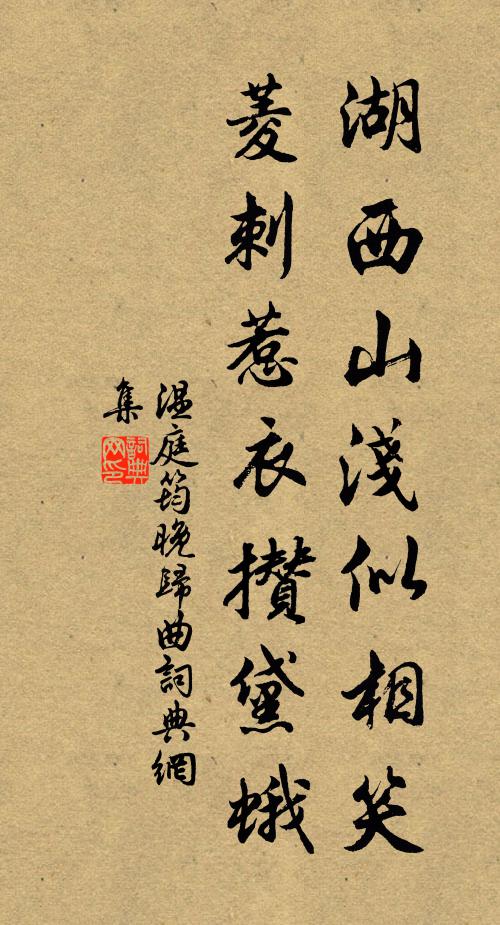 湖西山淺似相笑
菱刺惹衣攢黛蛾
溫庭筠晚歸曲詞典網
集
詞典
网印